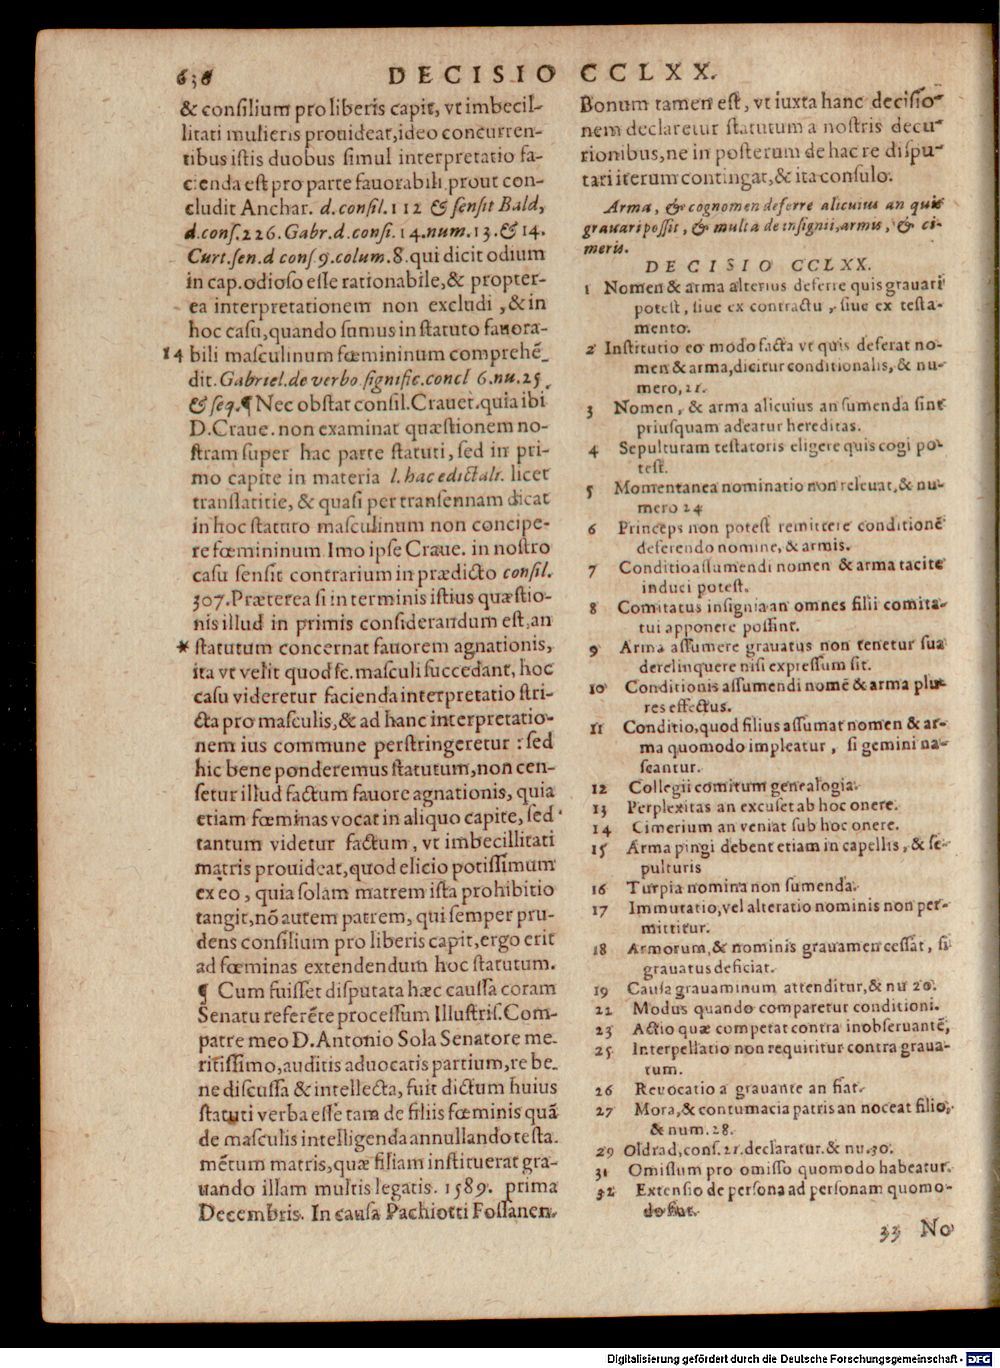 638 DECISIO CCLXX.
& consilium pro liberis capit, vt imbecil-
litati mulieris prouideat, ideo concurren-
tibus istis duobus simul interpretatio fa-
cienda est pro parte fauorabili, prout con-
cludit Anchar. d. consil. 112 & sensit Bald,
d. cons. 226. Gabr. d. consi. 14. num. 13. & 14.
Curt. sen. d cons. 9. colum. 8. qui dicit odium
in cap. odioso esse rationabile, & propter-
ea interpretationem non excludi, & in
hoc casu, quando sumus in statuto fauora-
14 bili masculinum fœmininum comprehē_
dit. Gabriel. de verbo. signific. concl 6. nu. 25,
& seq. ¶ Nec obstat consil. Crauet. quia ibi
D. Craue. non examinat quæstionem no-
stram super hac parte statuti, sed in pri-
mo capite in materia l. hac edictalr. licet
translatitie, & quasi per transennam dicat
in hoc statuto masculinum non concipe-
re fœmininum Imo ipse Craue. in nostro
casu sensit contrarium in prædicto consil.
307. Præterea si in terminis istius quæstio-
nis illud in primis considerandum est, an
* statutum concernat fauorem agnationis,
ita vt velit quod se. masculi succedant, hoc
casu videretur facienda interpretatio stri-
cta pro masculis, & ad hanc interpretatio-
nem ius commune perstringeretur : sed
hic bene ponderemus statutum, non cen-
setur illud factum fauore agnationis, quia
etiam fœminas vocat in aliquo capite, sed
tantum videtur factum, vt imbecillitati
matris prouideat, quod elicio potissimum
ex eo, quia solam matrem ista prohibitio
tangit, nō autem patrem, qui semper pru-
dens consilium pro liberis capit, ergo erit
ad fœminas extendendum hoc statutum.
¶ Cum fuisset disputata hæc caussa coram
Senatu referēte processum Illustris. Com-
patre meo D. Antonio Sola Senatore me-
ritissimo, auditis aduocatis partium, re be-
ne discussa & intellecta, fuit dictum huius
statuti verba esse tam de filiis fœminis quā
de masculis intelligenda annullando testa-
mētum matris, quæ filiam instituerat gra-
uando illam multis legatis. 1589. prima
Decembris. In causa Pachiotti Fossanen.
Bonum tamen est, vt iuxta hanc decisio-
nem declaretur statutum a nostris decu-
rionibus, ne in posterum de hac re dispu-
tari iterum contingat, & ita consulo.
Arma, & cognomen deferre alicuius an quis
grauari possit, & multa de insignii, armis, & ci-
meris.
DECISIO CCLXX.
1 Nomen & arma alterius deferre quis grauari
potest, siue ex contractu, siue ex testa-
mento.
2 Institutio eo modo facta vt quis deferat no-
men & arma, dicitur conditionalis, & nu-
mero, 21.
3 Nomen, & arma alicuius an sumenda sint
priusquam adeatur hereditas.
4 Sepulturam testatoris eligere quis cogi po-
test.
5 Momentanea nominatio non releuat, & nu-
mero 24
6 Princeps non potest remittere conditionē
deferendo nomine, & armis.
7 Conditio assumendi nomen & arma tacite
induci potest.
8 Comitatus insignia an omnes filii comita-
tui apponere possint.
9 Arma assumere grauatus non tenetur sua
derelinquere nisi expressum sit.
10 Conditionis assumendi nomē & arma plu-
res effectus.
11 Conditio, quod filius assumat nomen & ar-
ma quomodo impleatur, si gemini na-
scantur.
12 Collegii comitum genealogia.
13 Perplexitas an excuset ab hoc onere.
14 Cimerium an veniat sub hoc onere.
15 Arma pingi debent etiam in capellis, & se-
pulturis
16 Turpia nomina non sumenda.
17 Immutatio, vel alteratio nominis non per-
mittitur.
18 Armorum, & nominis grauamen cessat, si
grauatus deficiat.
19 Causa grauaminum attenditur, & nu 20.
22 Modus quando comparetur conditioni.
23 Actio quæ competat contra inobseruantē,
25 Interpellatio non requiritur contra graua-
tum.
26 Reuocatio a grauante an fiat.
27 Mora, & contumacia patris an noceat filio,
& num. 28.
29 Oldrad, cons. 21. declaratur. & nu. 30.
31 Omissum pro omisso quomodo habeatur.
32 Extensio de persona ad personam quomo-
do fiat.
33 No
Digitalisierung gefördert durch die Deutsche Forschungsgemeinschaft - DFG